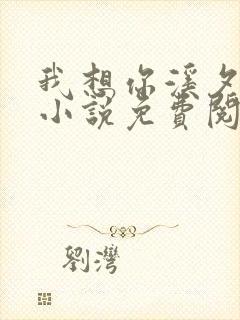 我想你溪夕
小説免費閱
劉灣